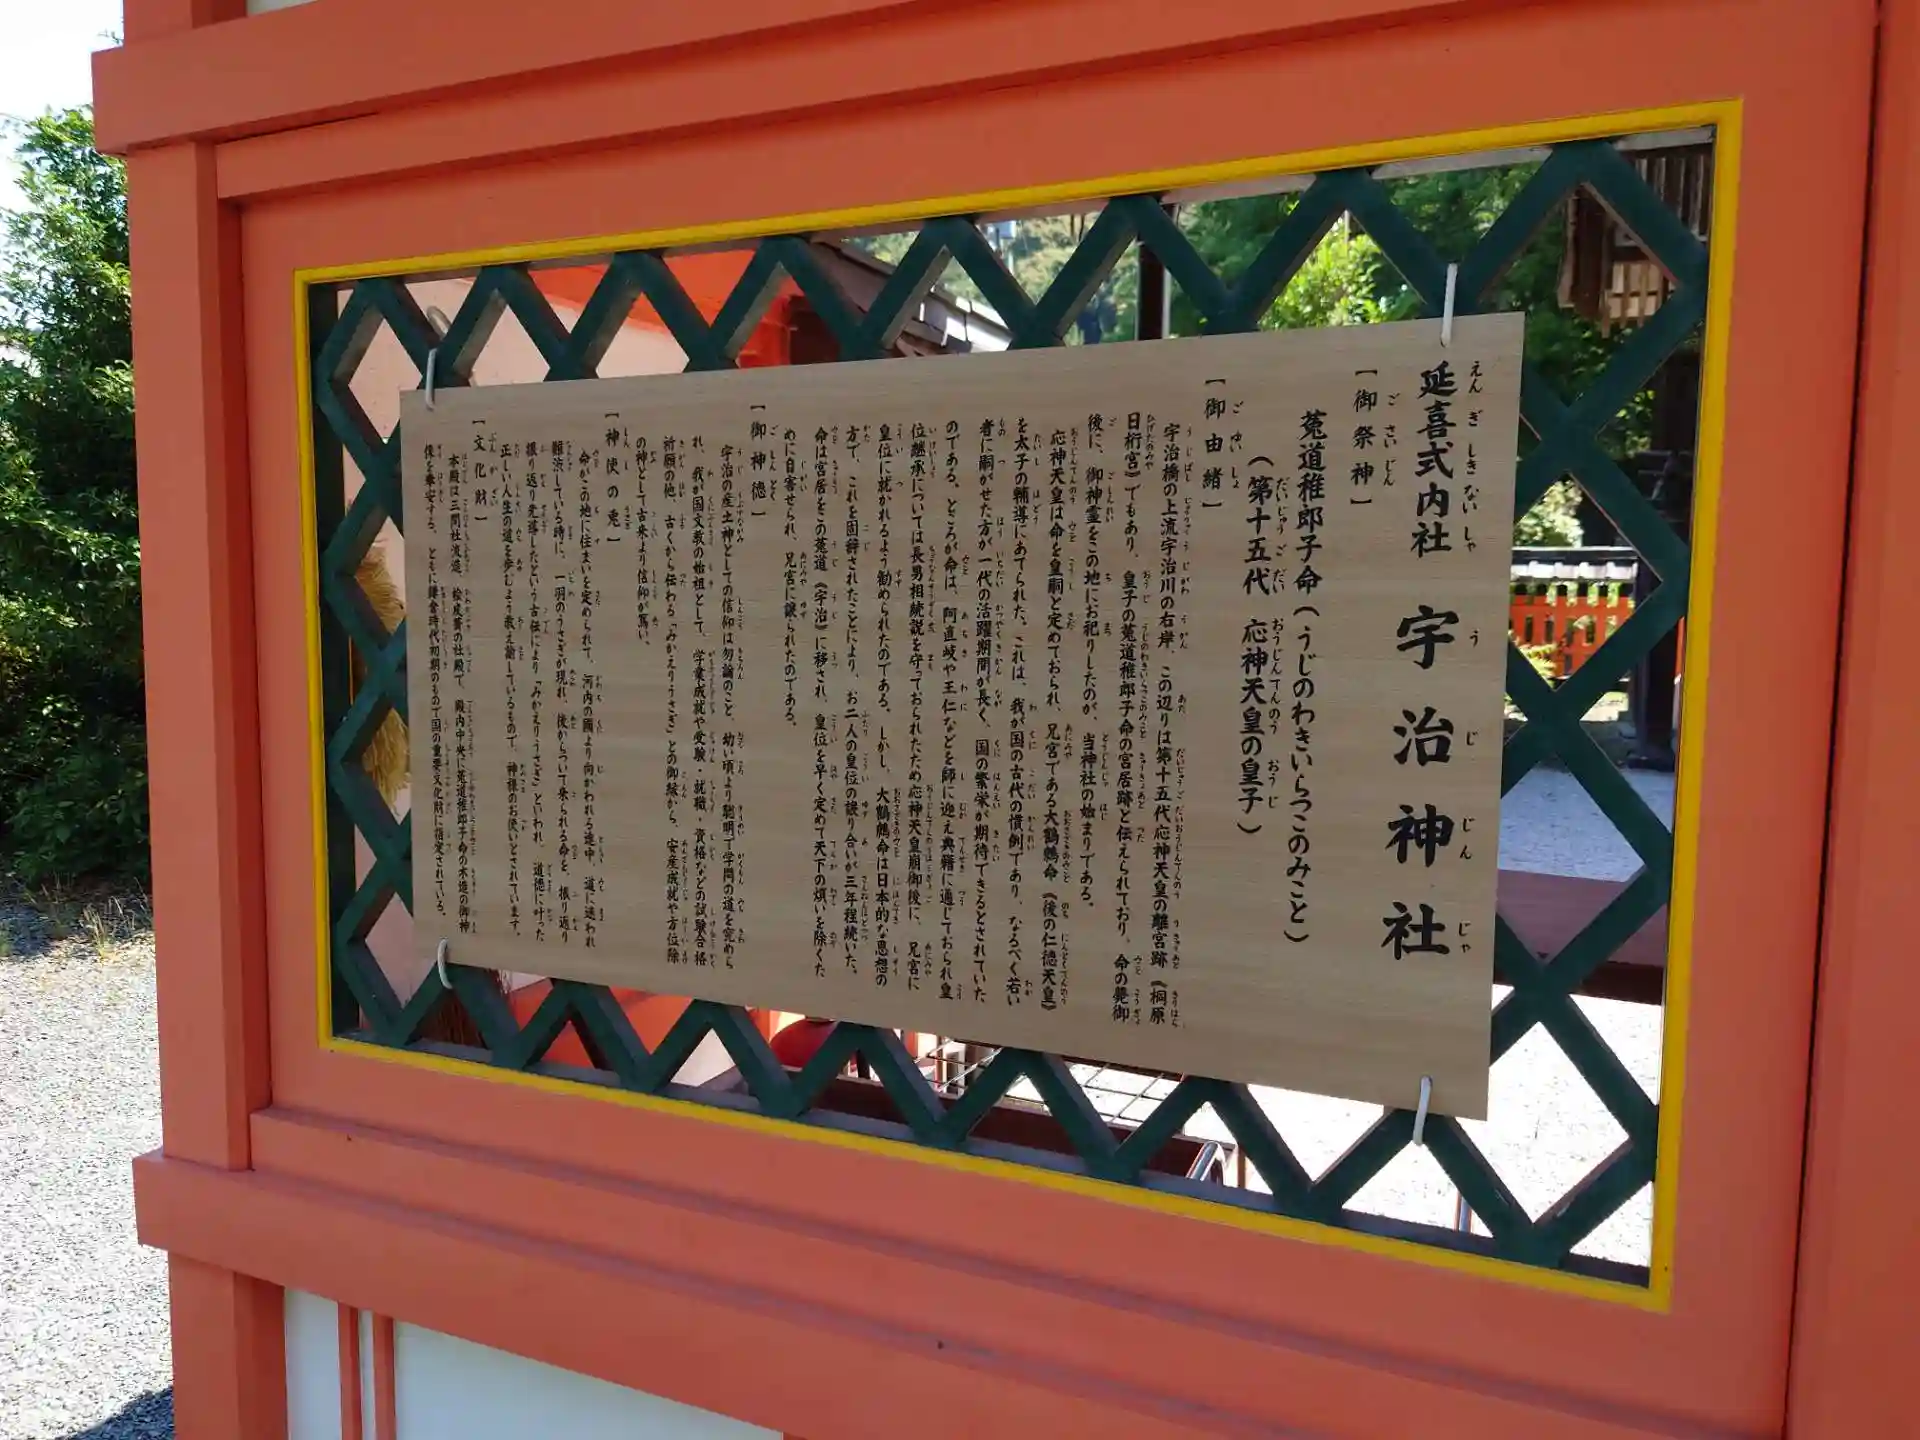 延喜式内社 宇治神社
【御祭神】
菟道稚郎子命(うじのわきいらつこのみこと)
(第十五代 応神天皇の皇子)
【御由緒】
宇治橋の上流宇治川の右岸、この辺りは第十五代応神天皇の離宮跡《桐原
日桁宮》でもあり、皇子の菟道稚郎子命の宮居跡と伝えられており、命の薨御
後に、御神霊をこの地にお祀りしたのが、当神社の始まりである。
応神天皇は命を皇嗣と定めておられ、兄宮である大鷦鷯命《後の仁徳天皇》
を太子の輔導にあてられた。これは、我が国の古代の慣例であり、なるべく若い
者に嗣がせた方が一代の活躍期間が長く、国の繁栄が期待できるとされていた
のである。ところが命は、阿直岐や王仁などを師に迎え典籍に通じておられ皇
位継承については長男相続説を守っておられたため応神天皇崩御後に、兄宮に
皇位に就かれるよう勧められたのである。しかし、大鷦鷯命は日本的な思想の
方で、これを固辞されたことにより、お二人の皇位の譲り合いが三年程続いた。
命は宮居をこの菟道《宇治》に移され、皇位を早く定めて天下の煩いを除くた
めに自害せられ、兄宮に譲られたのである。
【御神徳】
宇治の産土神としての信仰は勿論のこと、幼い頃より聡明で学問の道を究めら
れ、我が国文教の始祖として、学業成就や受験・就職・資格などの試験合格
祈願の他、古くから伝わる「みかえりうさぎ」との御縁から、安産成就や方位除
の神として古来より信仰が篤い。
【神使の兎】
命がこの地に住まいを定められて、河内の國より向かわれる途中、道に迷われ
難渋している時に、一羽のうさぎが現れ、後からついて来られる命を、振り返り
振り返り先導したという古伝により「みかえりうさぎ」といわれ、道徳に叶った
正しい人生の道を歩むよう教え諭しているもので、神様のお使いとされています。
【文化財】
本殿は三間社流造、桧皮葺の社殿で、殿内中央に菟道稚郎子命の木造の御神
像を奉安する、ともに鎌倉時代初期のもので国の重要文化財に指定されている。